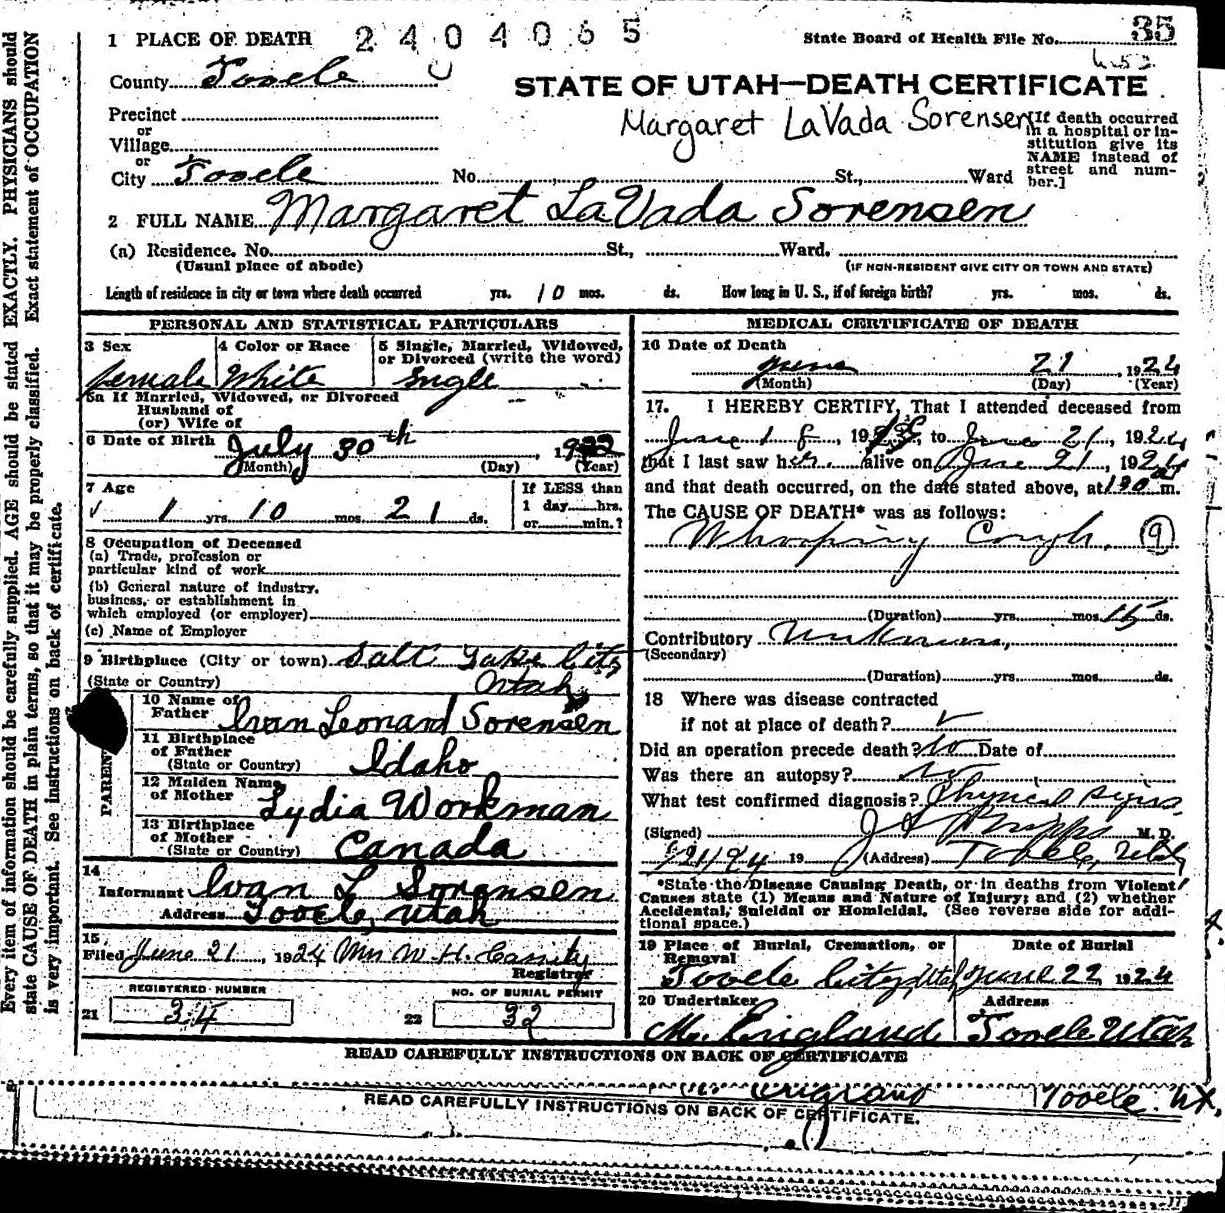 1 PLACE OF DEATH 2404065 State Board of Health File No. 35
County Tooele
STATE OF UTAH—DEATH CERTIFICATE
Precinct
or
Village
or
City Tooele No. St., Ward
Margaret LaVada Sorensen
[If death occurred
in a hospital or in-
stitution give its
NAME instead of
street and num-
ber.]
2 FULL NAME Margaret LaVada Sorensen
(a) Residence. No. St., Ward.
(Usual place of abode) (IF NON-RESIDENT GIVE CITY OR TOWN AND STATE)
Length of residence in city or town where death occurred yrs. 10 mos. ds. How long in U. S., if of foreign birth? yrs. mos. ds.
PERSONAL AND STATISTICAL PARTICULARS
3 Sex female
4 Color or Race White
5 Single, Married, Widowed,
or Divorced (write the word)
Single
5a If Married, Widowed, or Divorced
Husband of
(or) Wife of
6 Date of Birth July 30th, 1922
(Month) (Day) (Year)
7 Age
1 yrs. 10 mos. 21 ds.
If LESS than
1 day hrs.
or min.?
8 Occupation of Deceased
(a) Trade, profession or
particular kind of work
(b) General nature of industry,
business, or establishment in
which employed (or employer)
(c) Name of Employer
9 Birthplace (City or town) Salt Lake City
(State or Country) Utah
PARENTS
10 Name of
Father Ivan Leonard Sorensen
11 Birthplace
of Father
(State or Country) Idaho
12 Maiden Name
of Mother Lydia Workman
13 Birthplace
of Mother
(State or Country) Canada
14
Informant Ivan L Sorensen
Address Tooele, Utah
15
Filed June 21, 1924 Mrs W. H. Cassity
Registrar
REGISTERED NUMBER
21 34
NO. OF BURIAL PERMIT
22 32
MEDICAL CERTIFICATE OF DEATH
16 Date of Death
June 21, 1924
(Month) (Day) (Year)
17. I HEREBY CERTIFY, That I attended deceased from
June 18, 19 to June 21, 1924
that I last saw her alive on June 21, 1924
and that death occurred, on the date stated above, at 130 a m.
The CAUSE OF DEATH* was as follows:
Whooping Cough. 9
(Duration) yrs. mos. 15 ds.
Contributory Unknown,
(Secondary)
(Duration) yrs. mos. ds.
18 Where was disease contracted
if not at place of death?
Did an operation precede death? No Date of
Was there an autopsy? No
What test confirmed diagnosis? Physical signs
(Signed) M. D.
19 (Address) Tooele, Utah
*State the Disease Causing Death, or in deaths from Violent
Causes state (1) Means and Nature of Injury; and (2) whether
Accidental, Suicidal or Homicidal. (See reverse side for addi-
tional space.)
19 Place of Burial, Cremation, or
Removal
Tooele City, Utah
Date of Burial
June 22 1924
20 Undertaker
M. England
Address
Tooele Utah
READ CAREFULLY INSTRUCTIONS ON BACK OF CERTIFICATE
England Tooele. Ut,
READ CAREFULLY INSTRUCTIONS ON BACK OF CERTIFICATE.
Every item of information should be carefully supplied. AGE should be stated EXACTLY. PHYSICIANS should
state CAUSE OF DEATH in plain terms, so that it may be properly classified. Exact statement of OCCUPATION
is very important. See instructions on back of certificate.